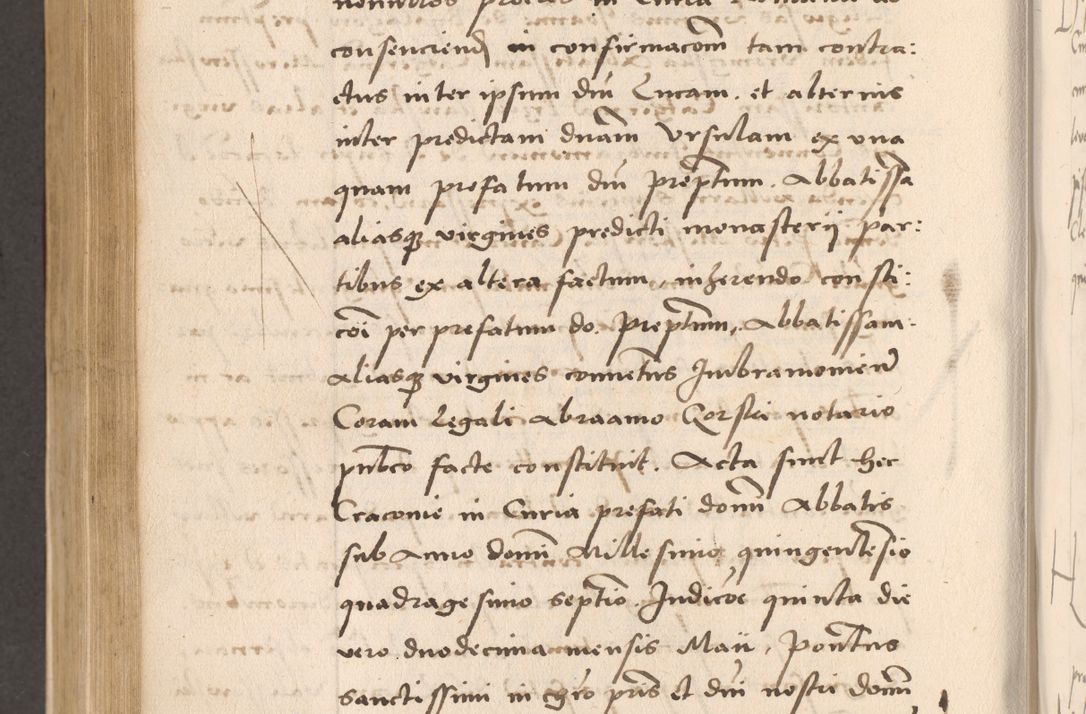 nonnullos
consenciend in confirmacom tam contra:
ctus inter ipsum dm Lucam. et alterius
inter predictam dnam Ursulam ex una
quam prefatum dm Preptum. Abbatissa
aliasq virgines predicti monasterij par:
tibus ex altera factum, inherendo consti:
coi per prefatum do. Preptum, Abbatissam
aliasq virgines conuetus Imbramouien
Coram legali Abraamo notario
pubco facte constituit. Acta sunt hec
Cracouie in Curia prefati domi Abbatis
sub Anno domi Millesimo quingentesio
quadragesimo septio. Indicoe quinta die
vero duodecima mensis Maij, Pontus
sanctissimi in chro pris et dni nostri domi